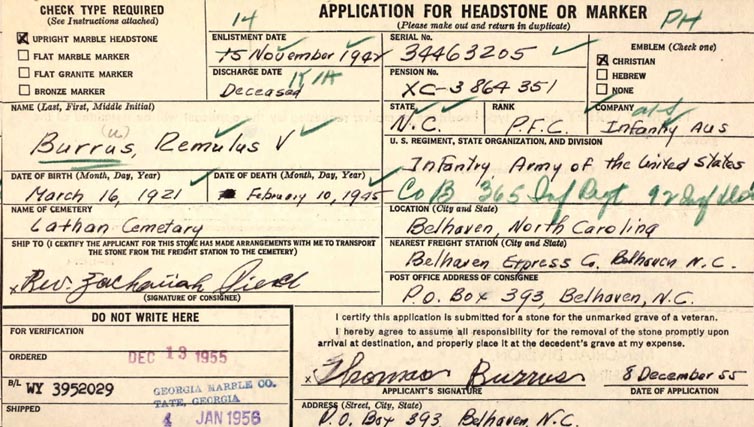 CHECK TYPE REQUIRED
(See Instructions attached)
☒ UPRIGHT MARBLE HEADSTONE
☐ FLAT MARBLE MARKER
☐ FLAT GRANITE MARKER
☐ BRONZE MARKER
APPLICATION FOR HEADSTONE OR MARKER
(Please make out and return in duplicate)
PH
14
ENLISTMENT DATE
15 November 1942
DISCHARGE DATE
KIA
Deceased
SERIAL No.
34463205
PENSION No.
XC-3864351
EMBLEM (Check one)
☒ CHRISTIAN
☐ HEBREW
☐ NONE
NAME (Last, First, Middle Initial)
(u)
Burrus, Remulus V
STATE
N.C.
RANK
P.F.C.
COMPANY
aus
Infantry Aus
U. S. REGIMENT, STATE ORGANIZATION, AND DIVISION
Infantry Army of the United States
Co B 365 Inf Regt 92 Inf Div
DATE OF BIRTH (Month, Day, Year)
March 16, 1921
DATE OF DEATH (Month, Day, Year)
February 10, 1945
NAME OF CEMETERY
Lathan Cemetary
LOCATION (City and State)
Belhaven, North Carolina
SHIP TO (I CERTIFY THE APPLICANT FOR THIS STONE HAS MADE ARRANGEMENTS WITH ME TO TRANSPORT
THE STONE FROM THE FREIGHT STATION TO THE CEMETERY)
x Rev. Zachariah
(SIGNATURE OF CONSIGNEE)
NEAREST FREIGHT STATION (City and State)
Belhaven Express Belhaven N.C.
POST OFFICE ADDRESS OF CONSIGNEE
P.O. Box 393, Belhaven, N.C.
DO NOT WRITE HERE
FOR VERIFICATION
ORDERED
DEC 13 1955
B/L WY 3952029
GEORGIA MARBLE CO.
TATE, GEORGIA
SHIPPED
4 JAN 1956
I certify this application is submitted for a stone for the unmarked grave of a veteran.
I hereby agree to assume all responsibility for the removal of the stone promptly upon
arrival at destination, and properly place it at the decedent's grave at my expense.
x Thomas Burrus
8 December 55
APPLICANT'S SIGNATURE
DATE OF APPLICATION
ADDRESS (Street, City, State)
P.O. Box 393 Belhaven, N.C.